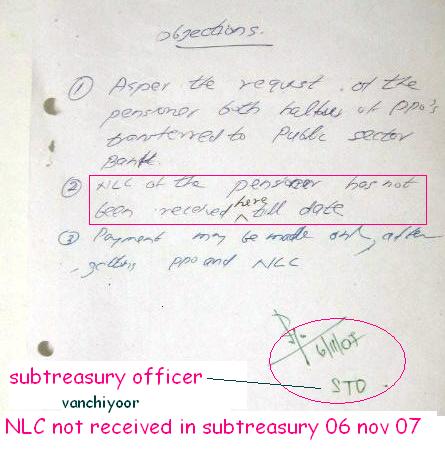 Objections.
① As per the request of the
pensioner both halves of PPO's
transferred to Public sector
Bank.
② NLC of the pensioner has not
been received here till date
③ Payment may be made only after
getting PPO and NLC
6/11/07
STO
subtreasury officer
vanchiyoor
NLC not received in subtreasury 06 nov 07